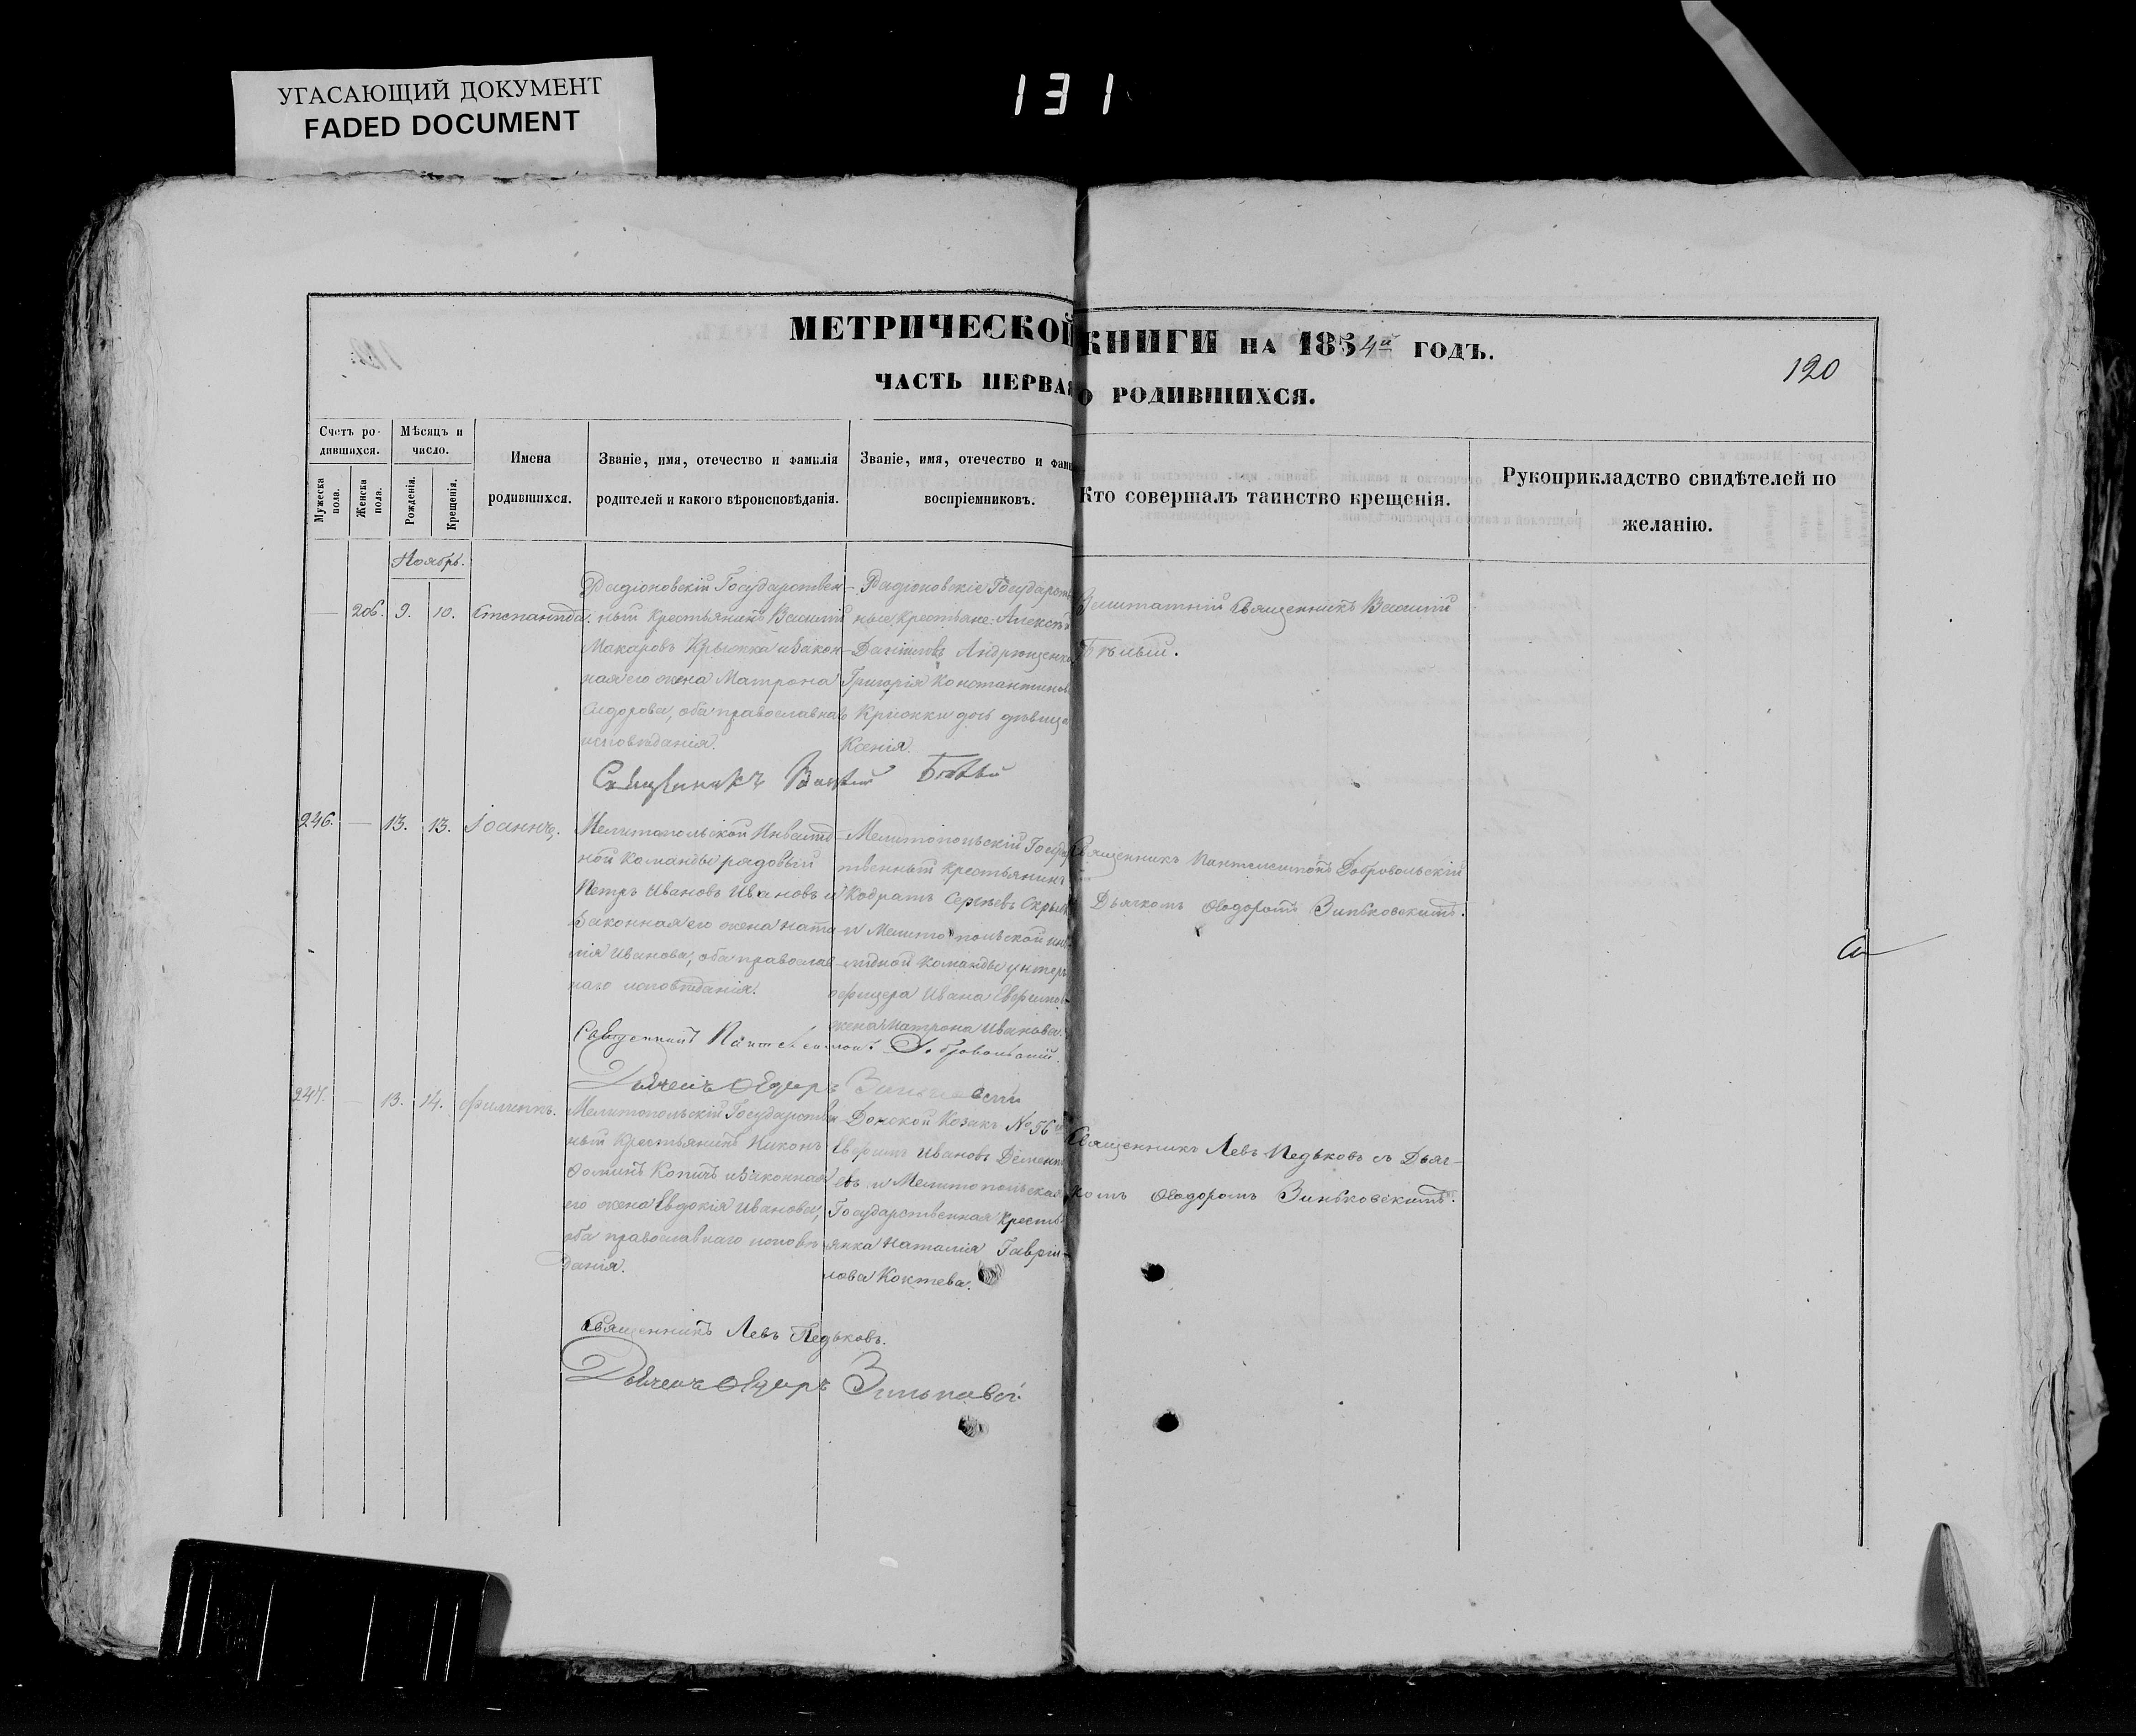 УГАСАЮЩИЙ ДОКУМЕНТ
FADED DOCUMENT
131
МЕТРИЧЕСКОЙ КНИГИ НА 1854й ГОДЪ.
120
ЧАСТЬ ПЕРВАЯ О РОДИВШИХСЯ.
Счетъ ро-
дившихся.
Мужеска пола.
Женска пола.
Мѣсяцъ и
число.
Рожденія.
Крещенія.
Имена
родившихся.
Званіе, имя, отечество и фамилія
родителей и какого вѣроисповѣданія.
Званіе, имя, отечество и фами
воспріемниковъ.
Кто совершалъ таинство крещенія.
Рукоприкладство свидѣтелей по
желанію.
Ноябрь.
— 206. 9. 10. Степанида.
Радіоновскій Государствен-
ный Крестьянинъ Василій
Макаровъ Крыжка и закон-
ная его жена Матрона
Сидорова, оба православнаго
исповѣданія.
Радіоновскіе Государств
ные Крестьяне: Алексѣй
Даниловъ Андрющенко
Григорія Константинов
Крижки дочь дѣвица
Ксенія.
Заштатный Священникъ Василий
Бѣлый.
Священникъ Василий Бѣлый
246. — 13. 13. Іоаннъ.
Мелитопольской Инвалид-
ной Команды рядовый
Петръ Ивановъ Ивановъ и
законная его жена Ната-
лія Иванова, оба православ-
наго исповѣданія.
Мелитопольскій Госуда
твенный Крестьянинъ
Кодратъ Сергѣевъ
и Мелитопольской инва
лидной Команды унтеръ
офицера Ивана Ефимов-
жена Матрона Иванова.
Священникъ Пантелеимонъ Добровольскій
Дьячкомъ Ѳеодоромъ Зиньковскимъ.
Священникъ Пантелеимонъ Добровольскій.
Дьячекъ Ѳедоръ Зиньковскій
247. — 13. 14. Филиппъ.
Мелитопольскій Государствен
ный Крестьянинъ Никонъ
Фоминъ Копичъ и законная
его жена Евдокія Иванова,
оба православнаго исповѣ
данія.
Донской Козакъ № 56
Ефимъ Ивановъ Дементь
евъ и Мелитопольская
Государственная Кресть
янка Наталія Гаврі-
лова Коктева.
Священникъ Левъ Педьковъ съ Дьяч-
комъ Ѳеодоромъ Зиньковскимъ.
Священникъ Левъ Педьковъ.
Дьячекъ Ѳедоръ Зиньковскій